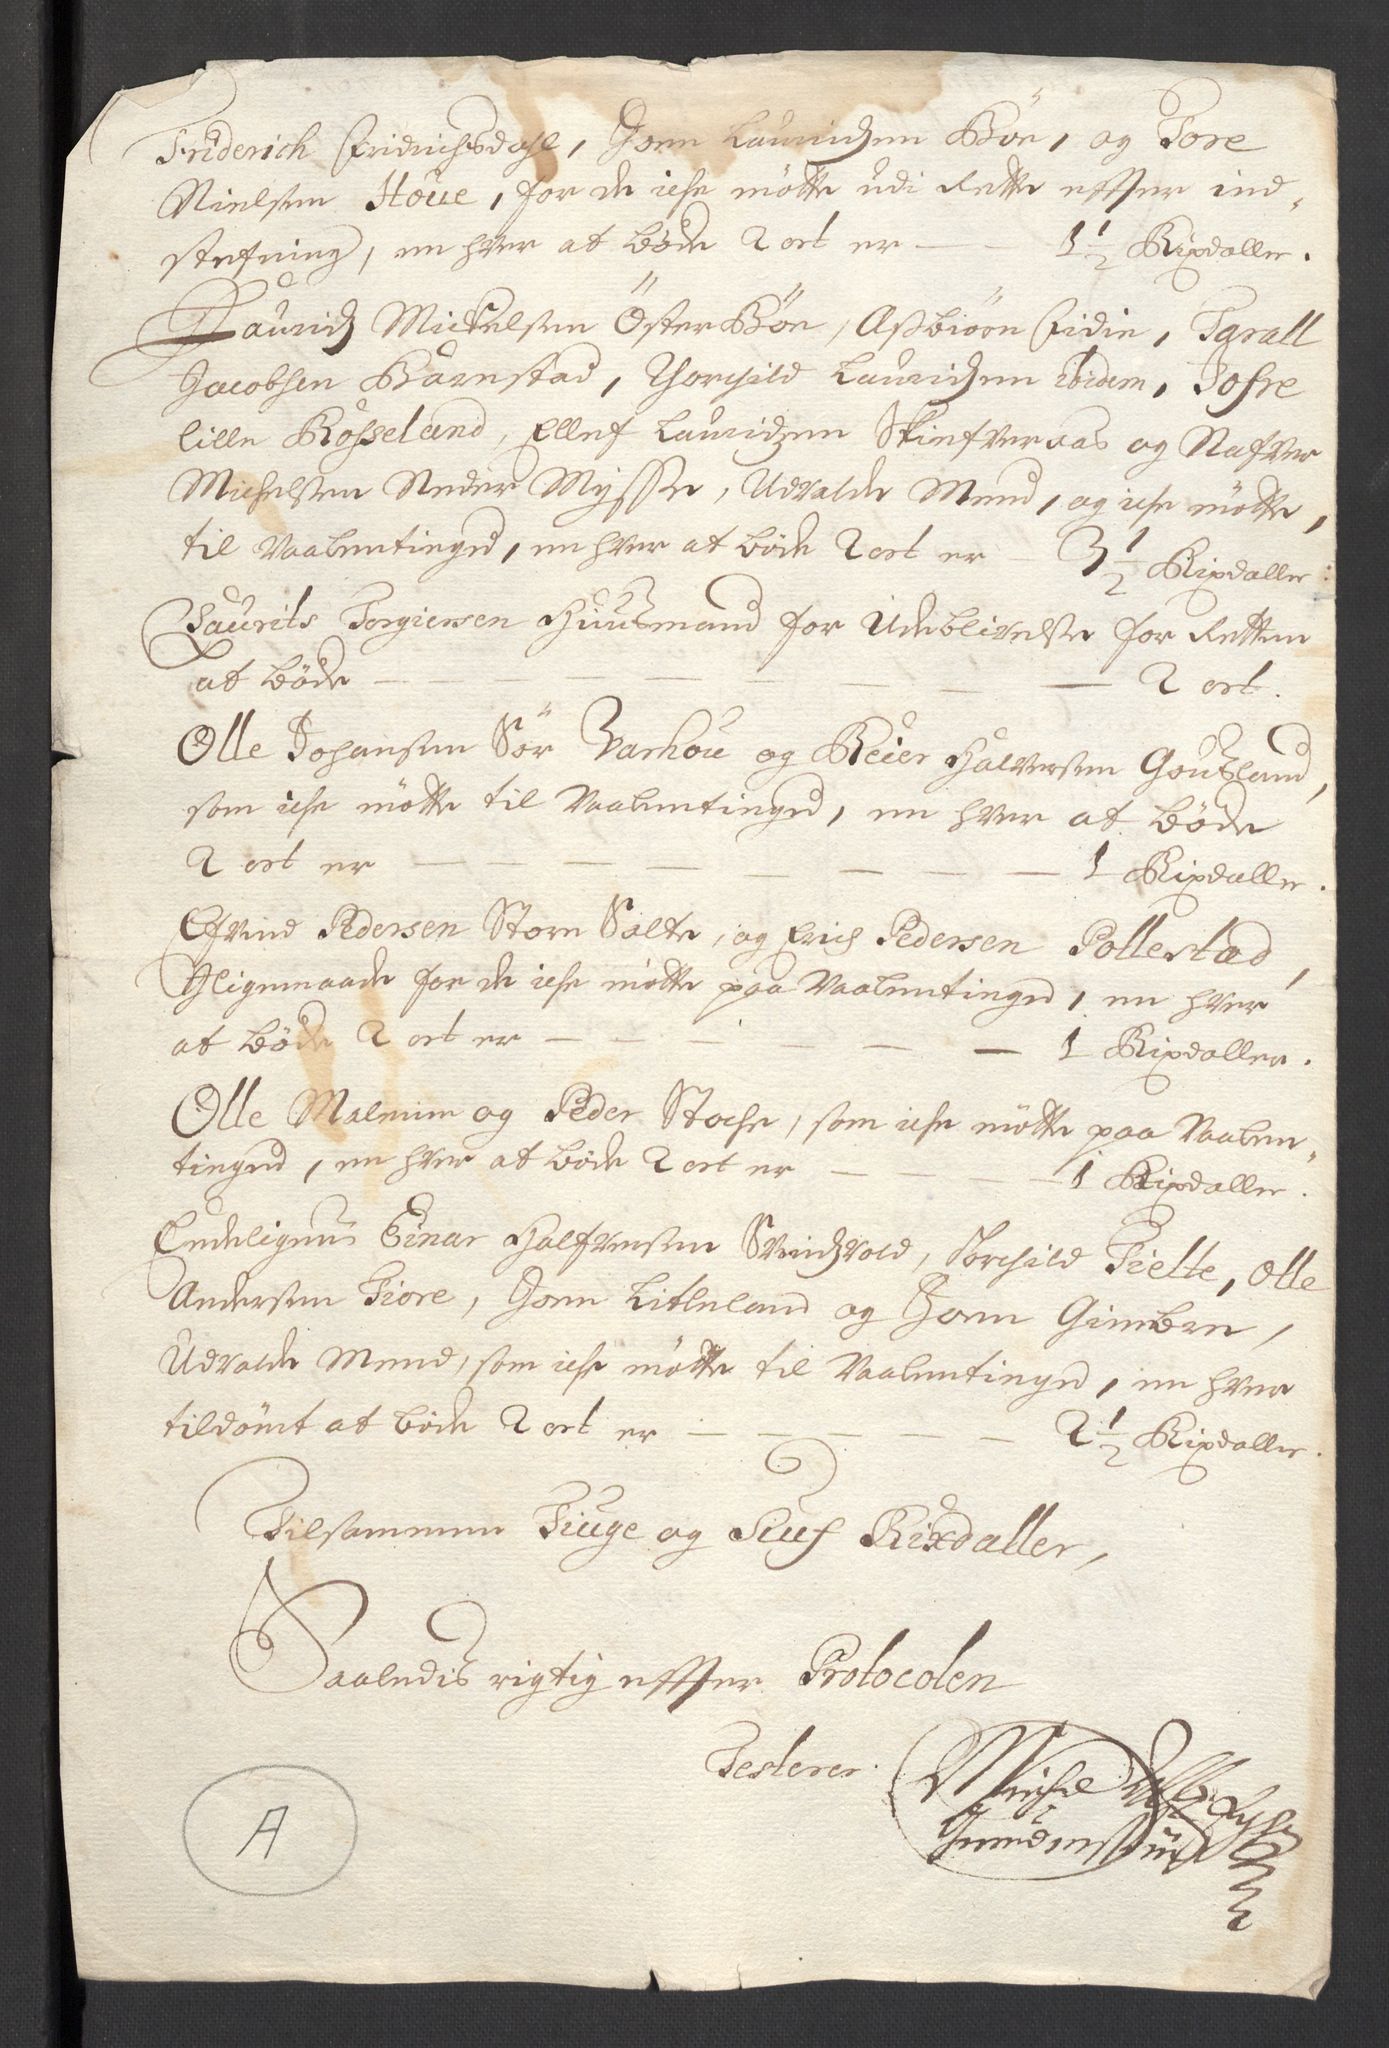 Friderich Fridrichsdahl, Joen Lauridzen Böe, og Tore
Nielsen Höue, for de iche mötte udi Rette effter ind-
stefning, en hver at bøde 2 ort er — — 1 1/2 Rixdaller.
Lauridz Mickelsen Öster Böe, Asbiörn Eidie, Tarall
Jacobsen Barnstad, Thorchild Lauridzen ibidem, Jofre
lille Rosseland, Ellef Lauridzen Skiefveraas og Rafver
Michelsen Neder Mysse, Udvalde Mend, og iche mötte,
til Vaabentinged, en hver at böde 2 ort er — 3 1/2 Rixdaller
Laurits Torgiersen Huusmand for Udeblivelse for Retten
at böde — — — — — — — — 2 ort.
Olle Johansen Sör Varhou og Reier Halversen Goutland,
som iche mötte til Vaabentinged, en hver at böde
2 ort er — — — — — — — — 1 Rixdaller.
Efvind Pedersen Store Salte, og Erich Pedersen Pollestad,
ligemaade for de iche mötte paa Vaabentinged, en hver
at böde 2 ort er — — — — — 1 Rixdaller.
Olle Malmim og Peder Stoche, som iche mötte paa Vaaben-
tinged, en hver at böde 2 ort er — — — — 1 Rixdaller.
Endeligens Einar Halfversen Svindzvold, Torchild Tielte, Olle
Andersen Tiore, Joen Litleland og Joen Gimbre,
Udvalde Mend, som iche mötte til Vaabentinged, en hver
tildömt at böde 2 ort er — — — — — 2 1/2 Rixdaller.
Tilsammen Tiuge og Siuf Rixdaller,
Saaledis rigtig effter Protocolen
Testerer.
A